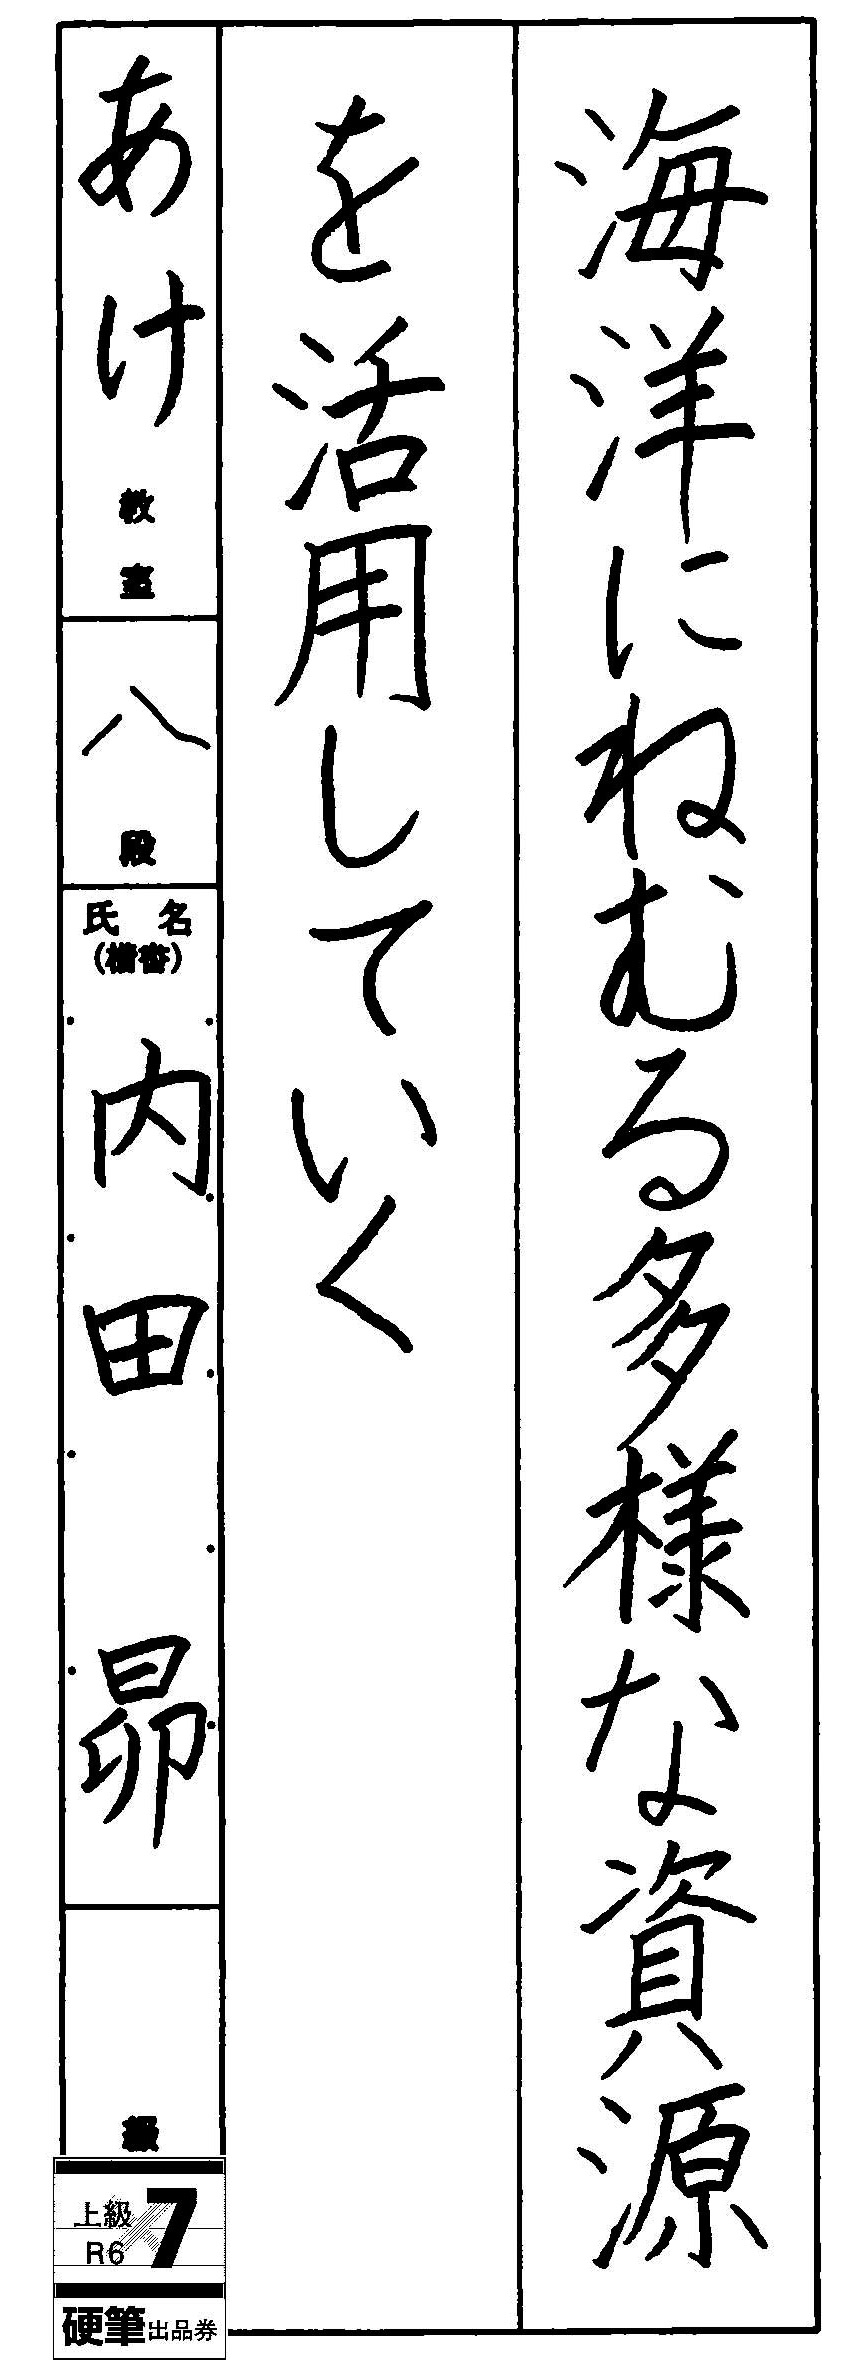 海洋にねむる多様な資源
を活用していく
あけ教室
八段
氏名
(楷書)
内田 昴
級
上級
R6
7
硬筆出品券